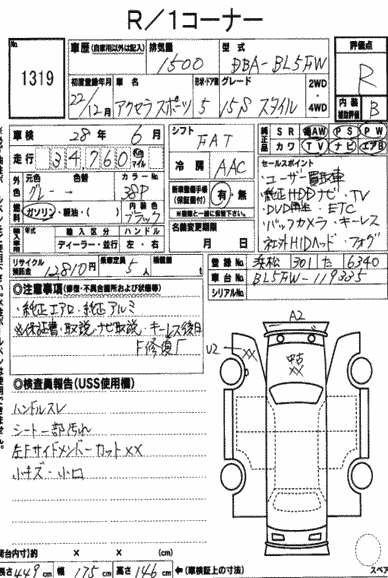 R／1コーナー
No.
1319
車歴 (自家用以外は記入) 排気量 型式 評価点
1500 DBA-BL5FW R
初度登録年月 車名 型状・ドア数 グレード 2WD・4WD 内装 補助評価
22/12月 アクセラスポーツ 5 15S スタイル B
車検 28年 6月
シフト FAT
純正品 SR AW PS PW
カワ TV ナビ エアB
走行 34760 km マイル
冷房 AAC
セールスポイント
・ユーザー買取車
・純正HDDナビ・TV
・DVD再生・ETC
・バックカメラ・キーレス
・社外HIDヘッド・フォグ
外色 元色 色替 カラーNo.
グレー → 38P
燃料 ガソリン・軽油・( ) 内装色 ブラック
新車整備手帳 (保証書付) 有・無
名義変更期限 月 日
輸入車 輸入区分 ハンドル
ディーラー・並行 左・右
リサイクル預託金 12810円 乗車定員 5人
登録No. 浜松 301 た 6340
車台No. BL5FW-119335
シリアルNo.
◎注意事項 (修復・不具合箇所および状態等)
・純正エアロ・純正アルミ
※保証書・取説・ナビ取説・キーレス後日
F修復
◎検査員報告 (USS使用欄)
ハンドルスレ
シート一部汚れ
左FサイドメンバーカットXX
小キズ・小凹
A2
U2
XX
中古
XX
荷台内寸) × × (cm)
長さ 449 cm 幅 175 cm 高さ 146 cm ←(車検証上の寸法)
スペア